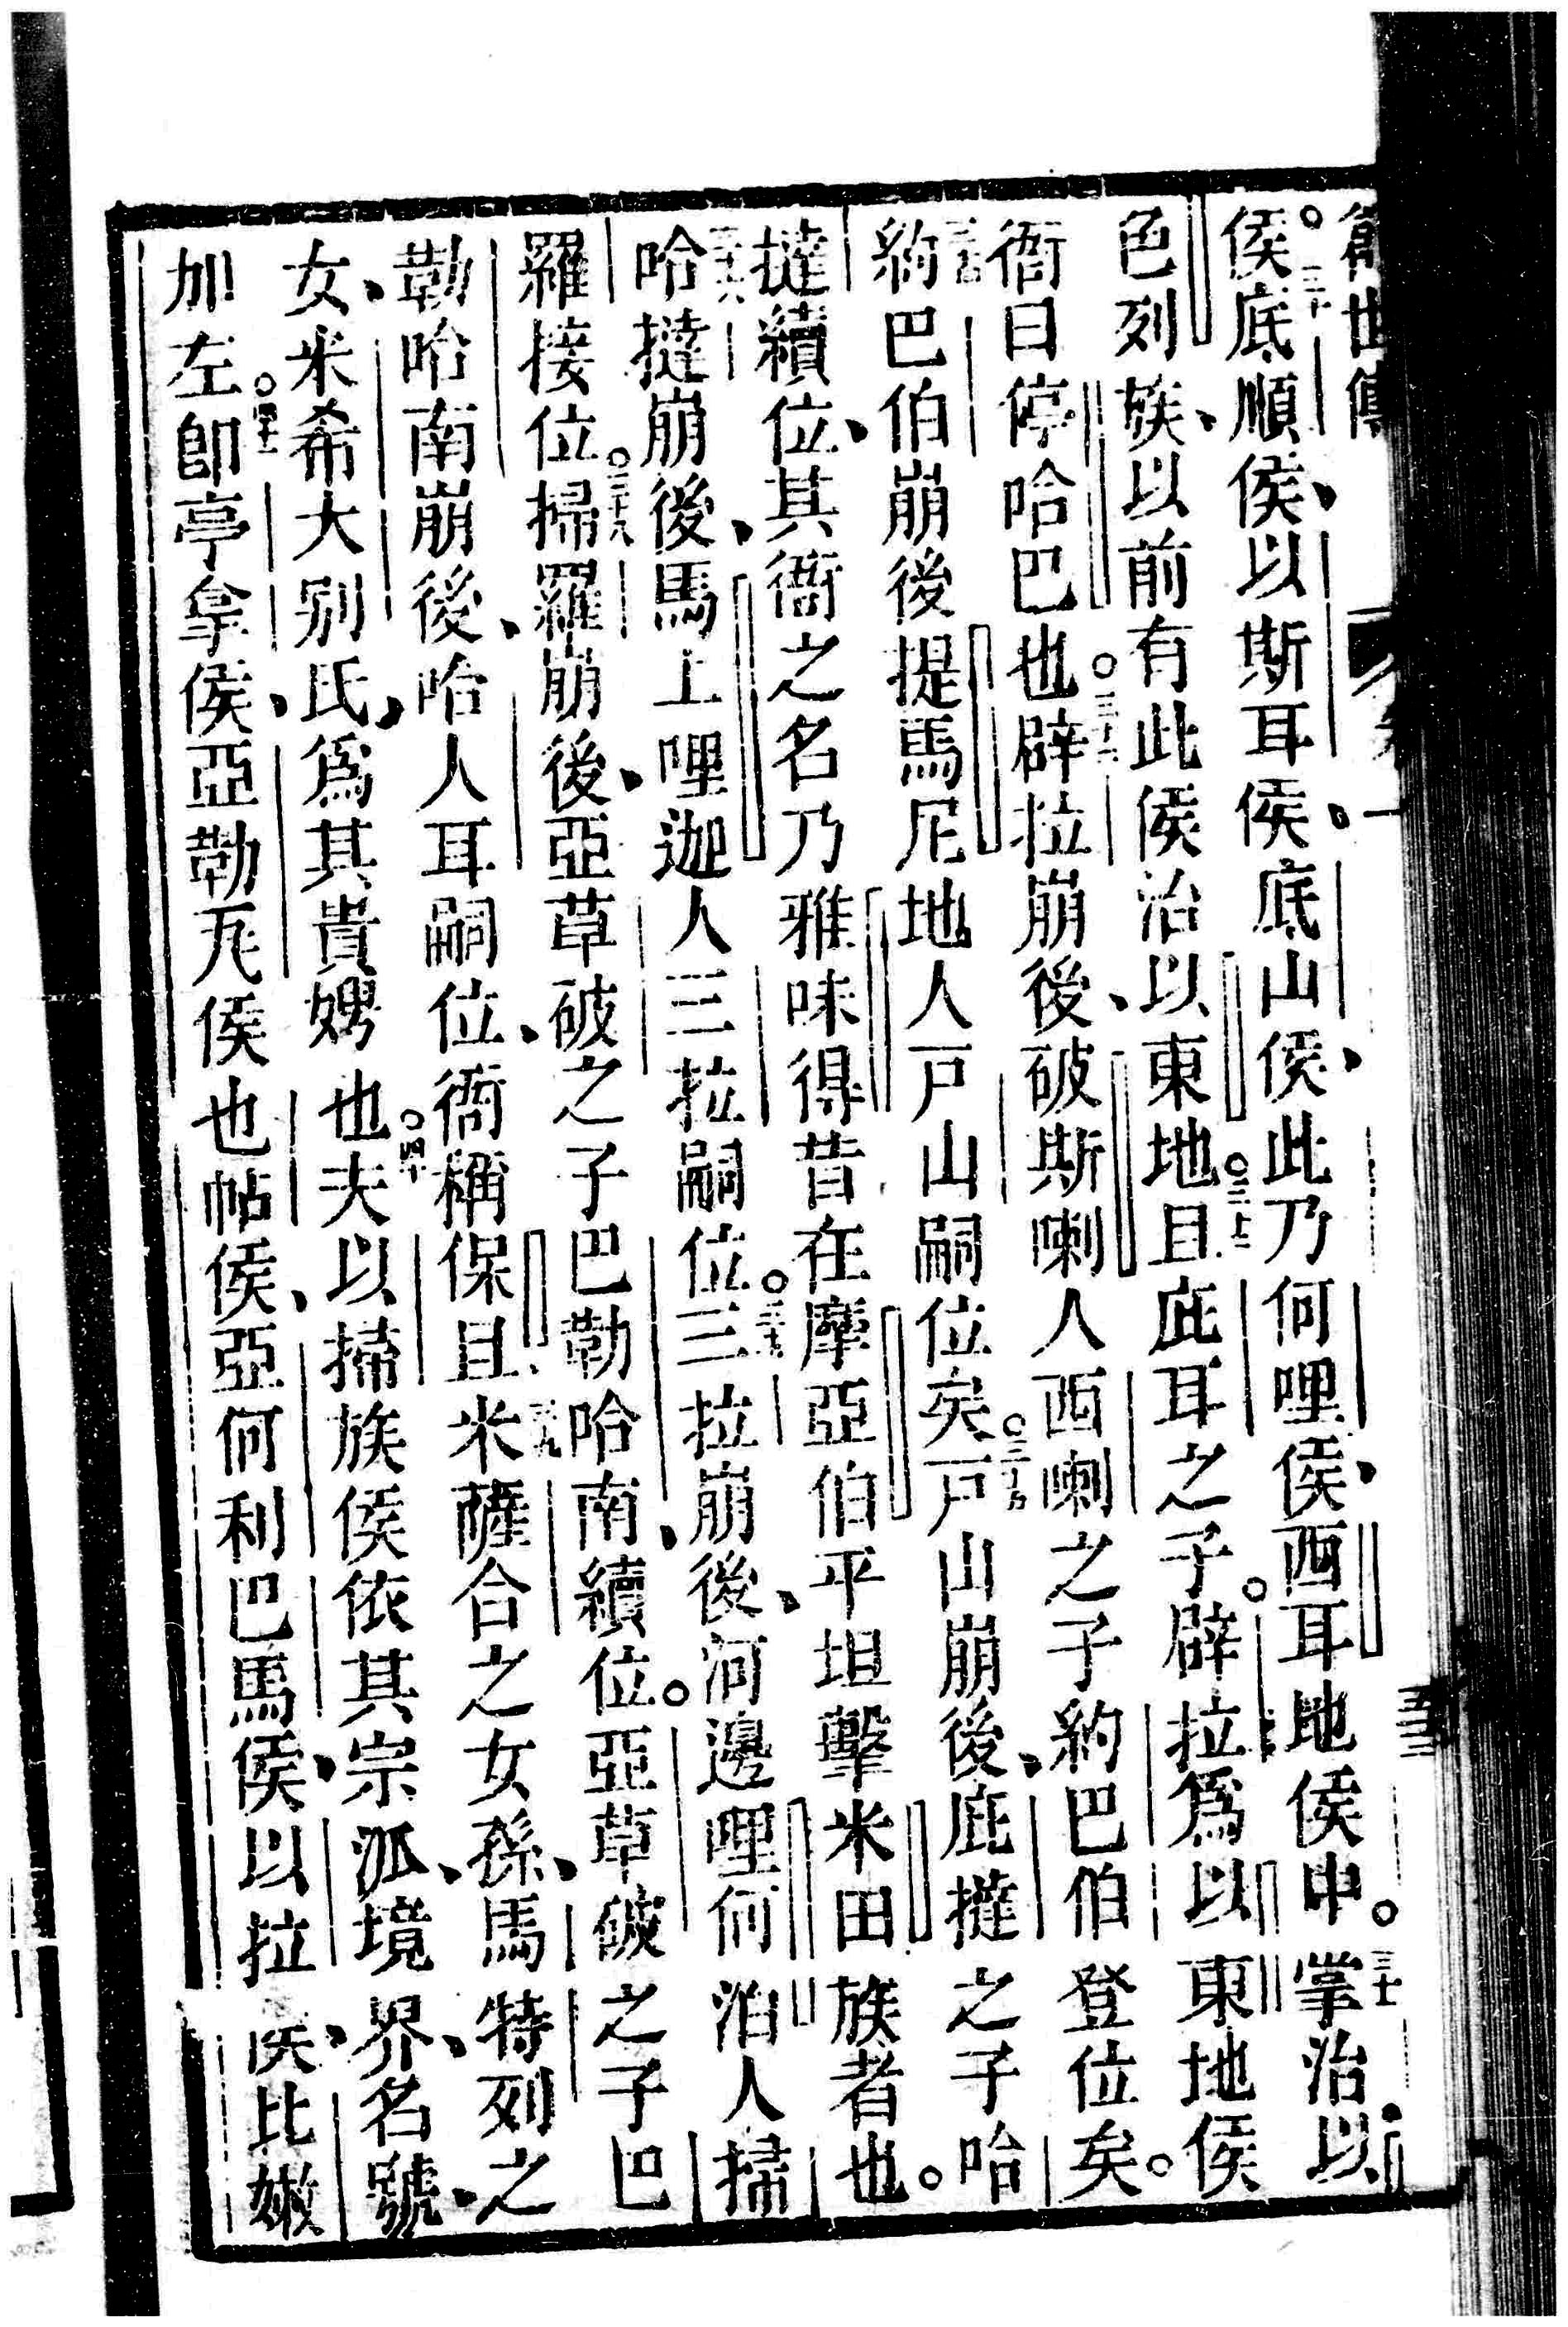 創世傳
侯。三十底順侯、以斯耳侯、底山侯、此乃何哩侯、西耳地侯中。三十一掌治以
色列族、以前有此侯治以東地。三十二且庇耳之子。辟拉爲以東地侯
衙曰停哈巴也。三十三辟拉崩後、破斯喇人西喇之子約巴伯登位矣。
三十四約巴伯崩後提馬尼地人戸山嗣位矣。三十五戸山崩後、庇撻之子哈
撻續位、其衙之名乃雅味得昔在摩亞伯平坦擊米田族者也。
三十六哈撻崩後、馬士哩迦人三拉嗣位。三十七三拉崩後、河邊哩何泊人掃
羅接位。三十八掃羅崩後、亞草破之子巴勒哈南、續位。亞草破之子巴
勒哈南崩後、哈人耳嗣位、衙稱保且三十九米薩合之女孫、馬特列之
女、米希大別氏、爲其貴娚也。四十夫以掃族侯依其宗派、境界、名號、
加左。四十一卽亭拿侯、亞勒瓦侯也帖侯、亞何利巴馬侯、以拉侯、比嫩